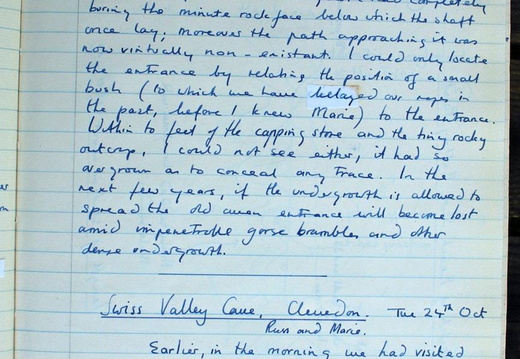 completely
burying the minute rock face below which the shaft
once lay; moreover the path approaching it was
now virtually non-existant. I could only locate
the entrance by relating the position of a small
bush (to which we have belayed our ropes in
the past, before I knew Marie) to the entrance.
Within 10 feet of the capping stone and the tiny rocky
outcrop, I could not see either, it had so
overgrown as to conceal any trace. In the
next few years, if the undergrowth is allowed to
spread the old cavern entrance will become lost
amid impenetrable gorse brambles and other
dense undergrowth.
Swiss Valley Cave, Clevedon. Tue 24th Oct
and Marie.
Earlier, in the morning we had visited